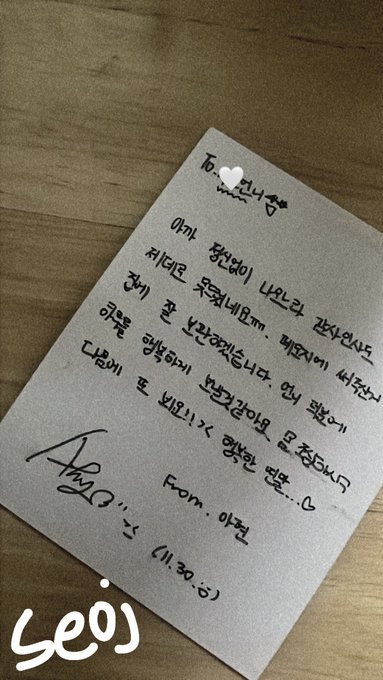 To. 🤍언니
아까 정신없이 나오느라 감사인사도
제대로 못했네요ㅠㅠ. 메모지에 써주신거
집에 잘 보관하겠습니다. 언니 덕분에
하루를 행복하게 보낼것같아요
다음에 또 봬요!! >< 행복한 연말...♡
From. 아현
(11.30. :))
seoj